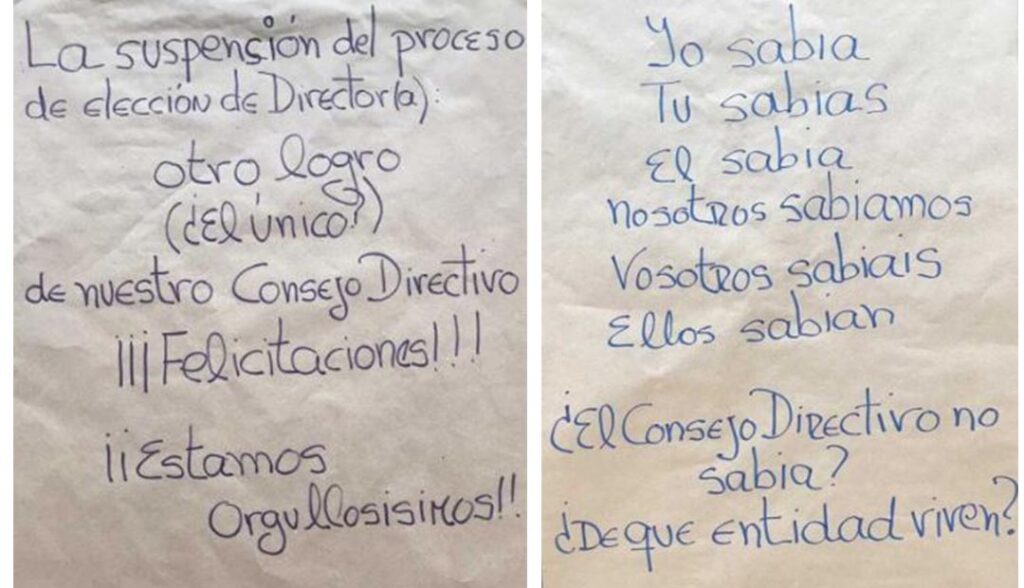 La suspensión del proceso
de elección de Director(a):
otro logro
(¿El único?)
de nuestro Consejo Directivo
¡¡¡Felicitaciones!!!
¡¡Estamos
orgullosisimos!!
Yo sabia
Tu sabias
El sabia
nosotros sabiamos
Vosotros sabiais
Ellos sabian
¿El Consejo Directivo no
sabia?
¿De que entidad viven?